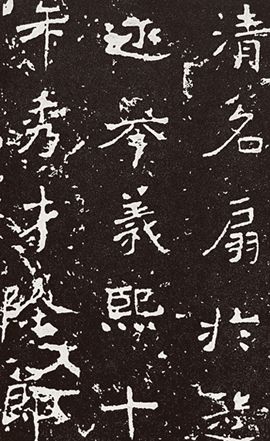 清名扇於遐
迩舉義熙十
年秀才除郎